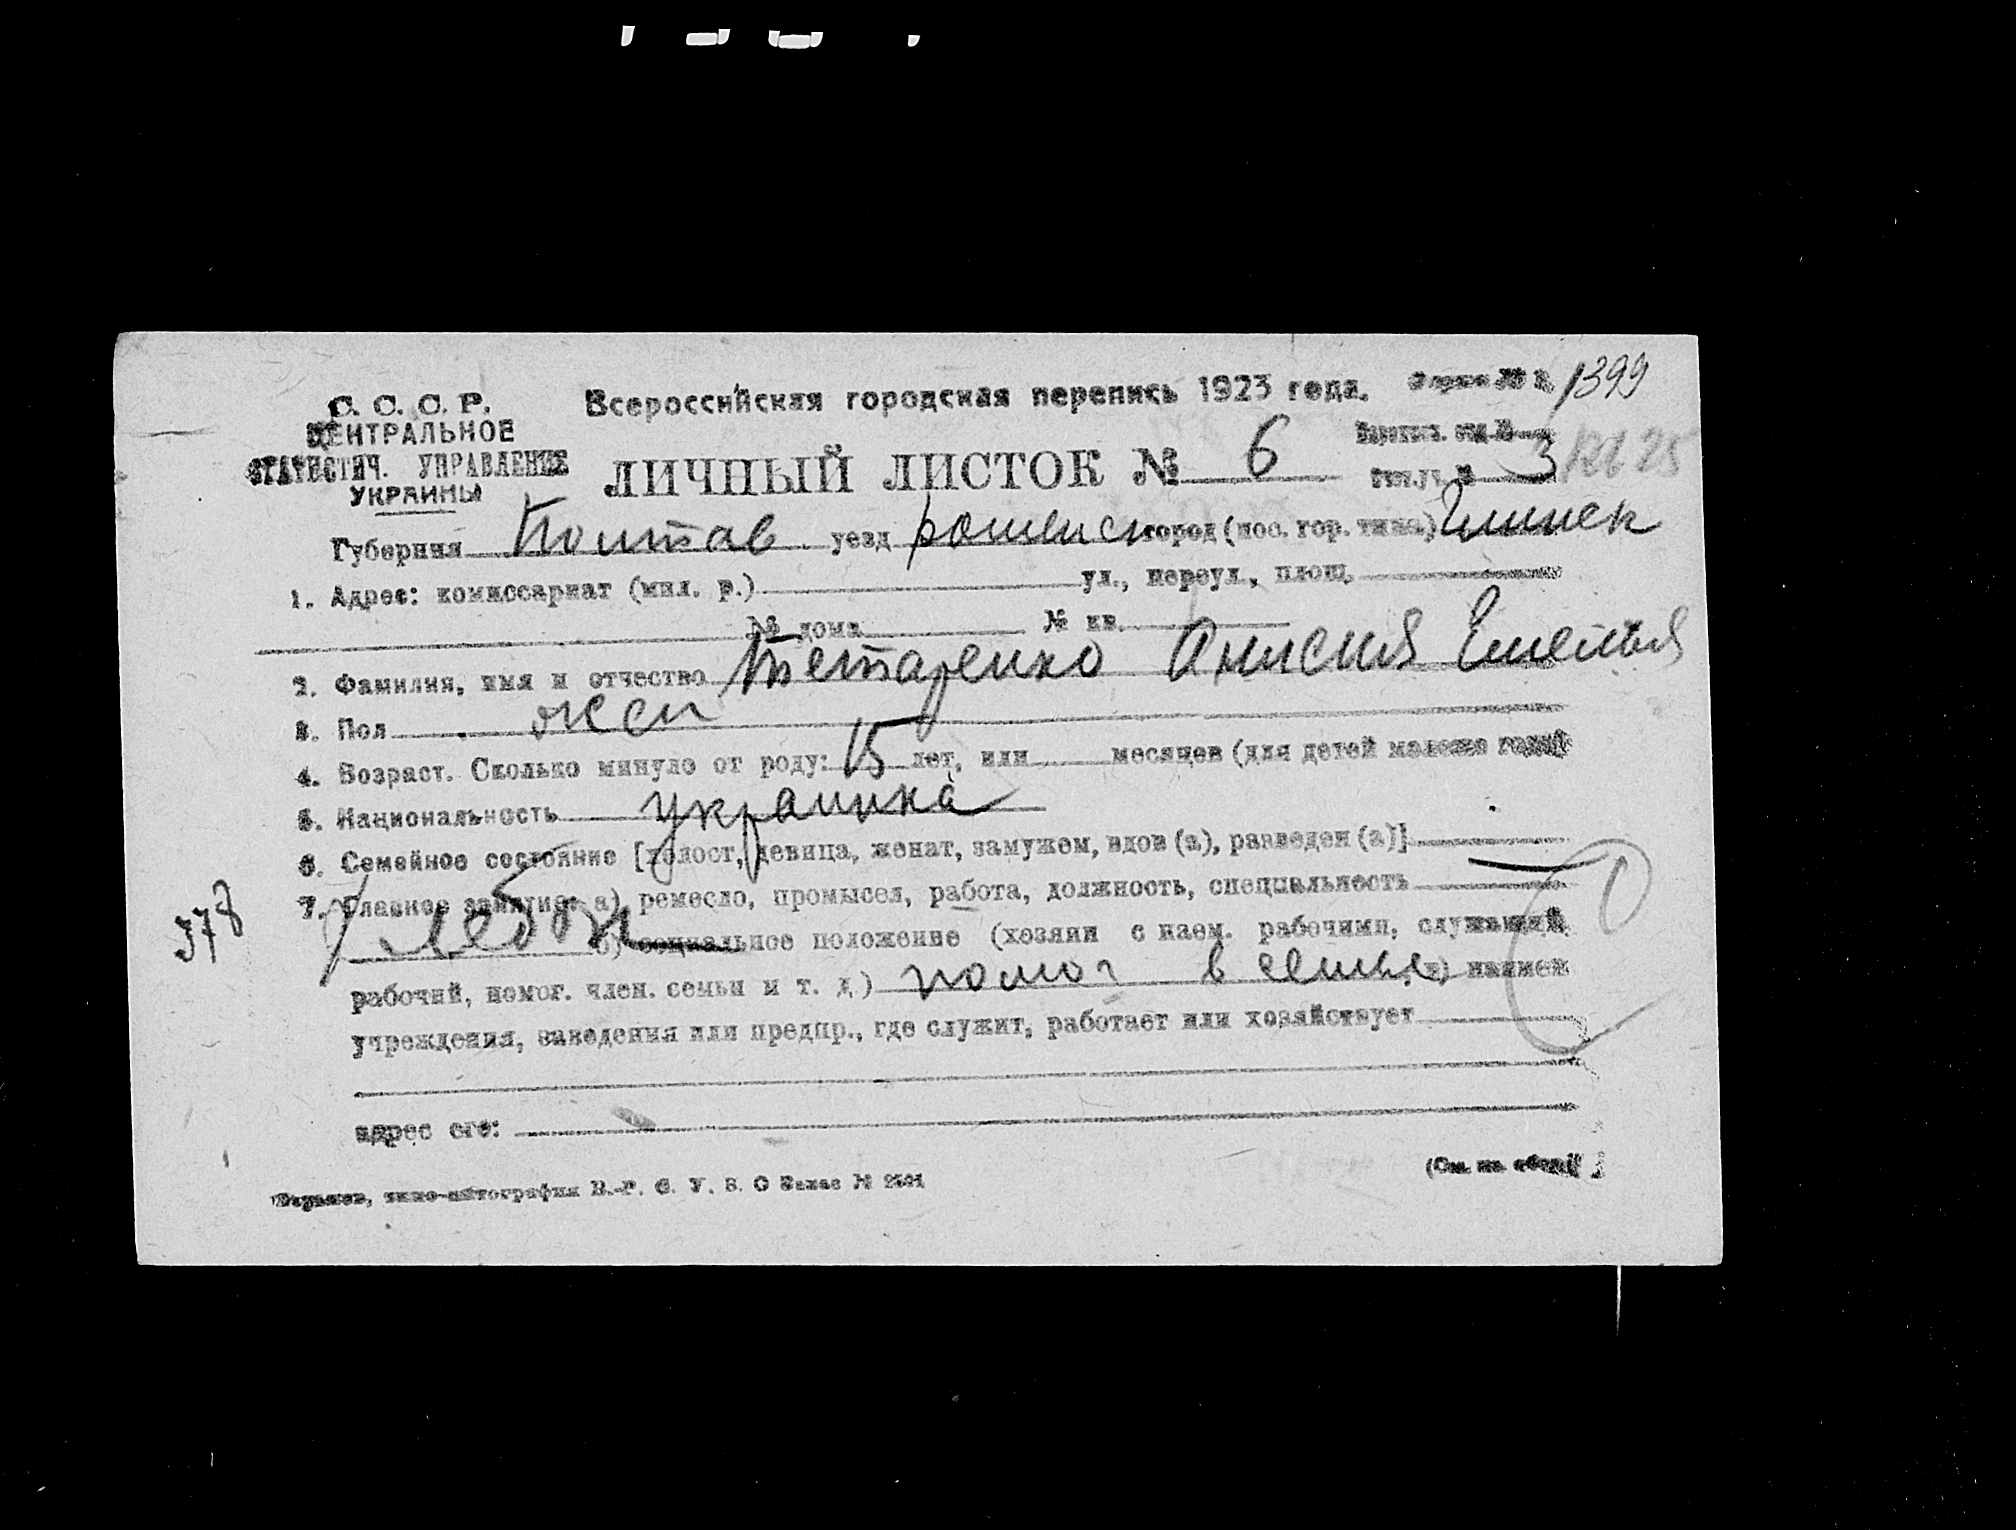 С. С. С. Р.
ЦЕНТРАЛЬНОЕ
СТАТИСТИЧ. УПРАВЛЕНИЕ
УКРАИНЫ
Всероссийская городская перепись 1923 года.
Форма № 2
1399
ЛИЧНЫЙ ЛИСТОК № 6
3
Губерния Полтав уезд ромен город (пос. гор. типа) Глинск
1. Адрес: комиссариат (мил. р.) ул., переул., площ.
№ дома № кв.
2. Фамилия, имя и отчество Тетаренко Анисия Емельян
3. Пол жен
4. Возраст. Сколько минуло от роду: 15 лет, или месяцев (для детей моложе года)
5. Национальность украинка
6. Семейное состояние [холост, девица, женат, замужем, вдов (а), разведен (а)]
7. Главное занятие: а) ремесло, промысел, работа, должность, специальность
хлебоп б) социальное положение (хозяин с наем. рабочими, служащий
рабочий, помог. член. семьи и т. д.) помог в семье в) наимен
учреждения, заведения или предпр., где служит, работает или хозяйствует
адрес его:
(См. на обор.)
Харьков, типо-литография В.-У. С. У. З. О Заказ №
378